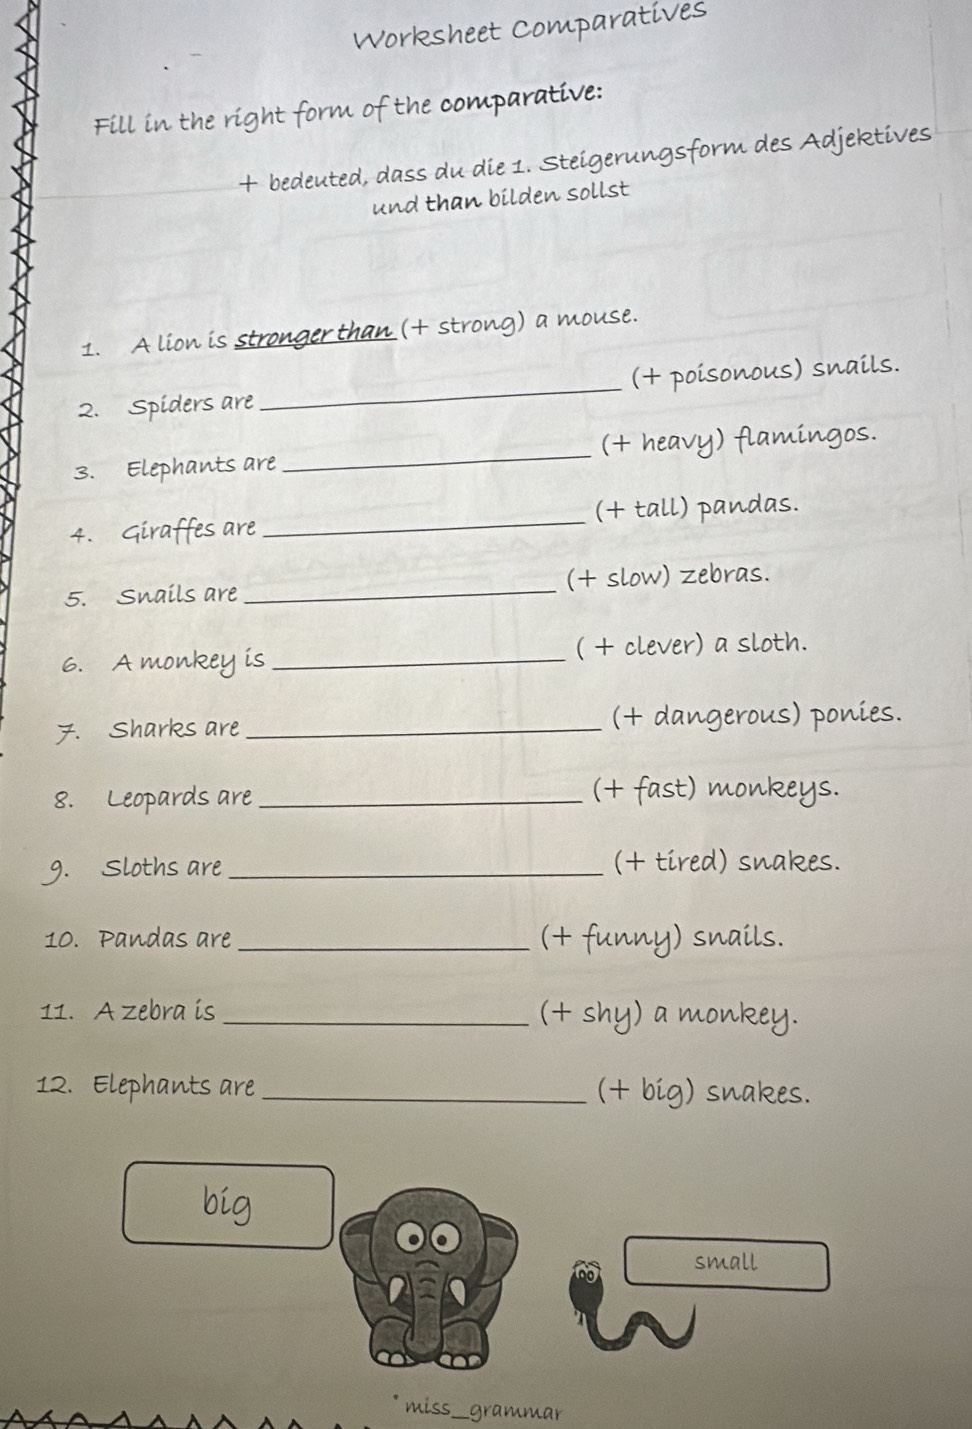 Worksheet Comparatives
Fill in the right form of the comparative:
+ bedeuted, dass du die 1. Steigerungsform des Adjektives
und than bilden sollst
1. A lion is stronger than (+ strong) a mouse.
2. Spiders are ____________ (+ poisonous) snails.
3. Elephants are ____________ (+ heavy) flamingos.
4. Giraffes are ____________ (+ tall) pandas.
5. Snails are ____________ (+ slow) zebras.
6. A monkey is ____________ ( + clever) a sloth.
7. Sharks are ____________ (+ dangerous) ponies.
8. Leopards are ____________ (+ fast) monkeys.
9. Sloths are ____________ (+ tired) snakes.
10. Pandas are ____________ (+ funny) snails.
11. A zebra is ____________ (+ shy) a monkey.
12. Elephants are ____________ (+ big) snakes.
big
small
miss_grammar